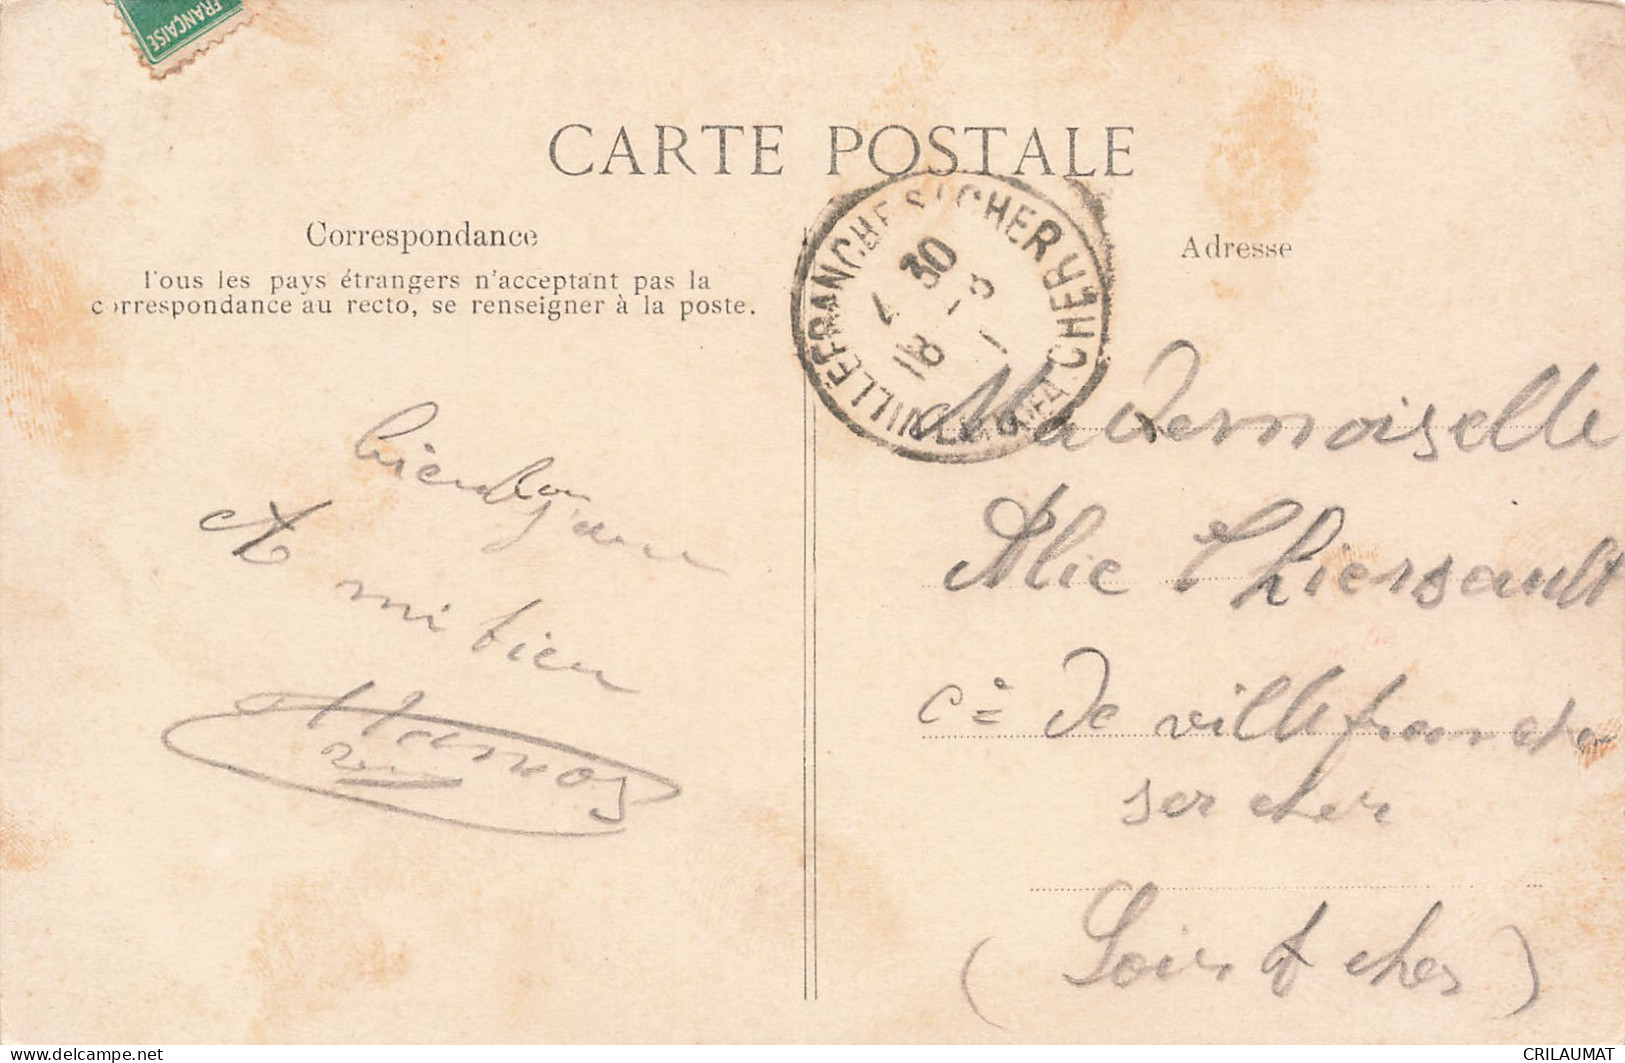 FRANÇAISE
CARTE POSTALE
Correspondance
Tous les pays étrangers n'acceptant pas la
correspondance au recto, se renseigner à la poste.
Adresse
VILLEFRANCHE S/ CHER
CHER
4 30
18 - 3
1
bien bon
A mi bien
Mademoiselle
Alie Thiersault
Ce De villefranche
ser cher
(Loir et cher)
CRILAUMAT
delcampe.net